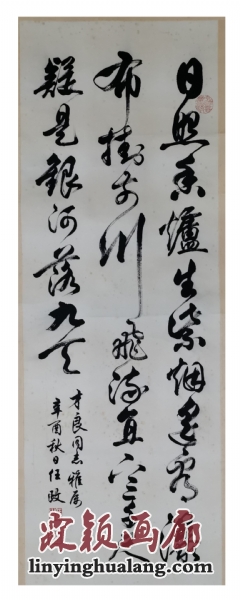 日照香爐生紫烟遥看瀑
布掛前川飛流直下三千尺
疑是銀河落九天
才良同志雅属
辛酉秋日任政
霖颖画廊
linyinghualang.com